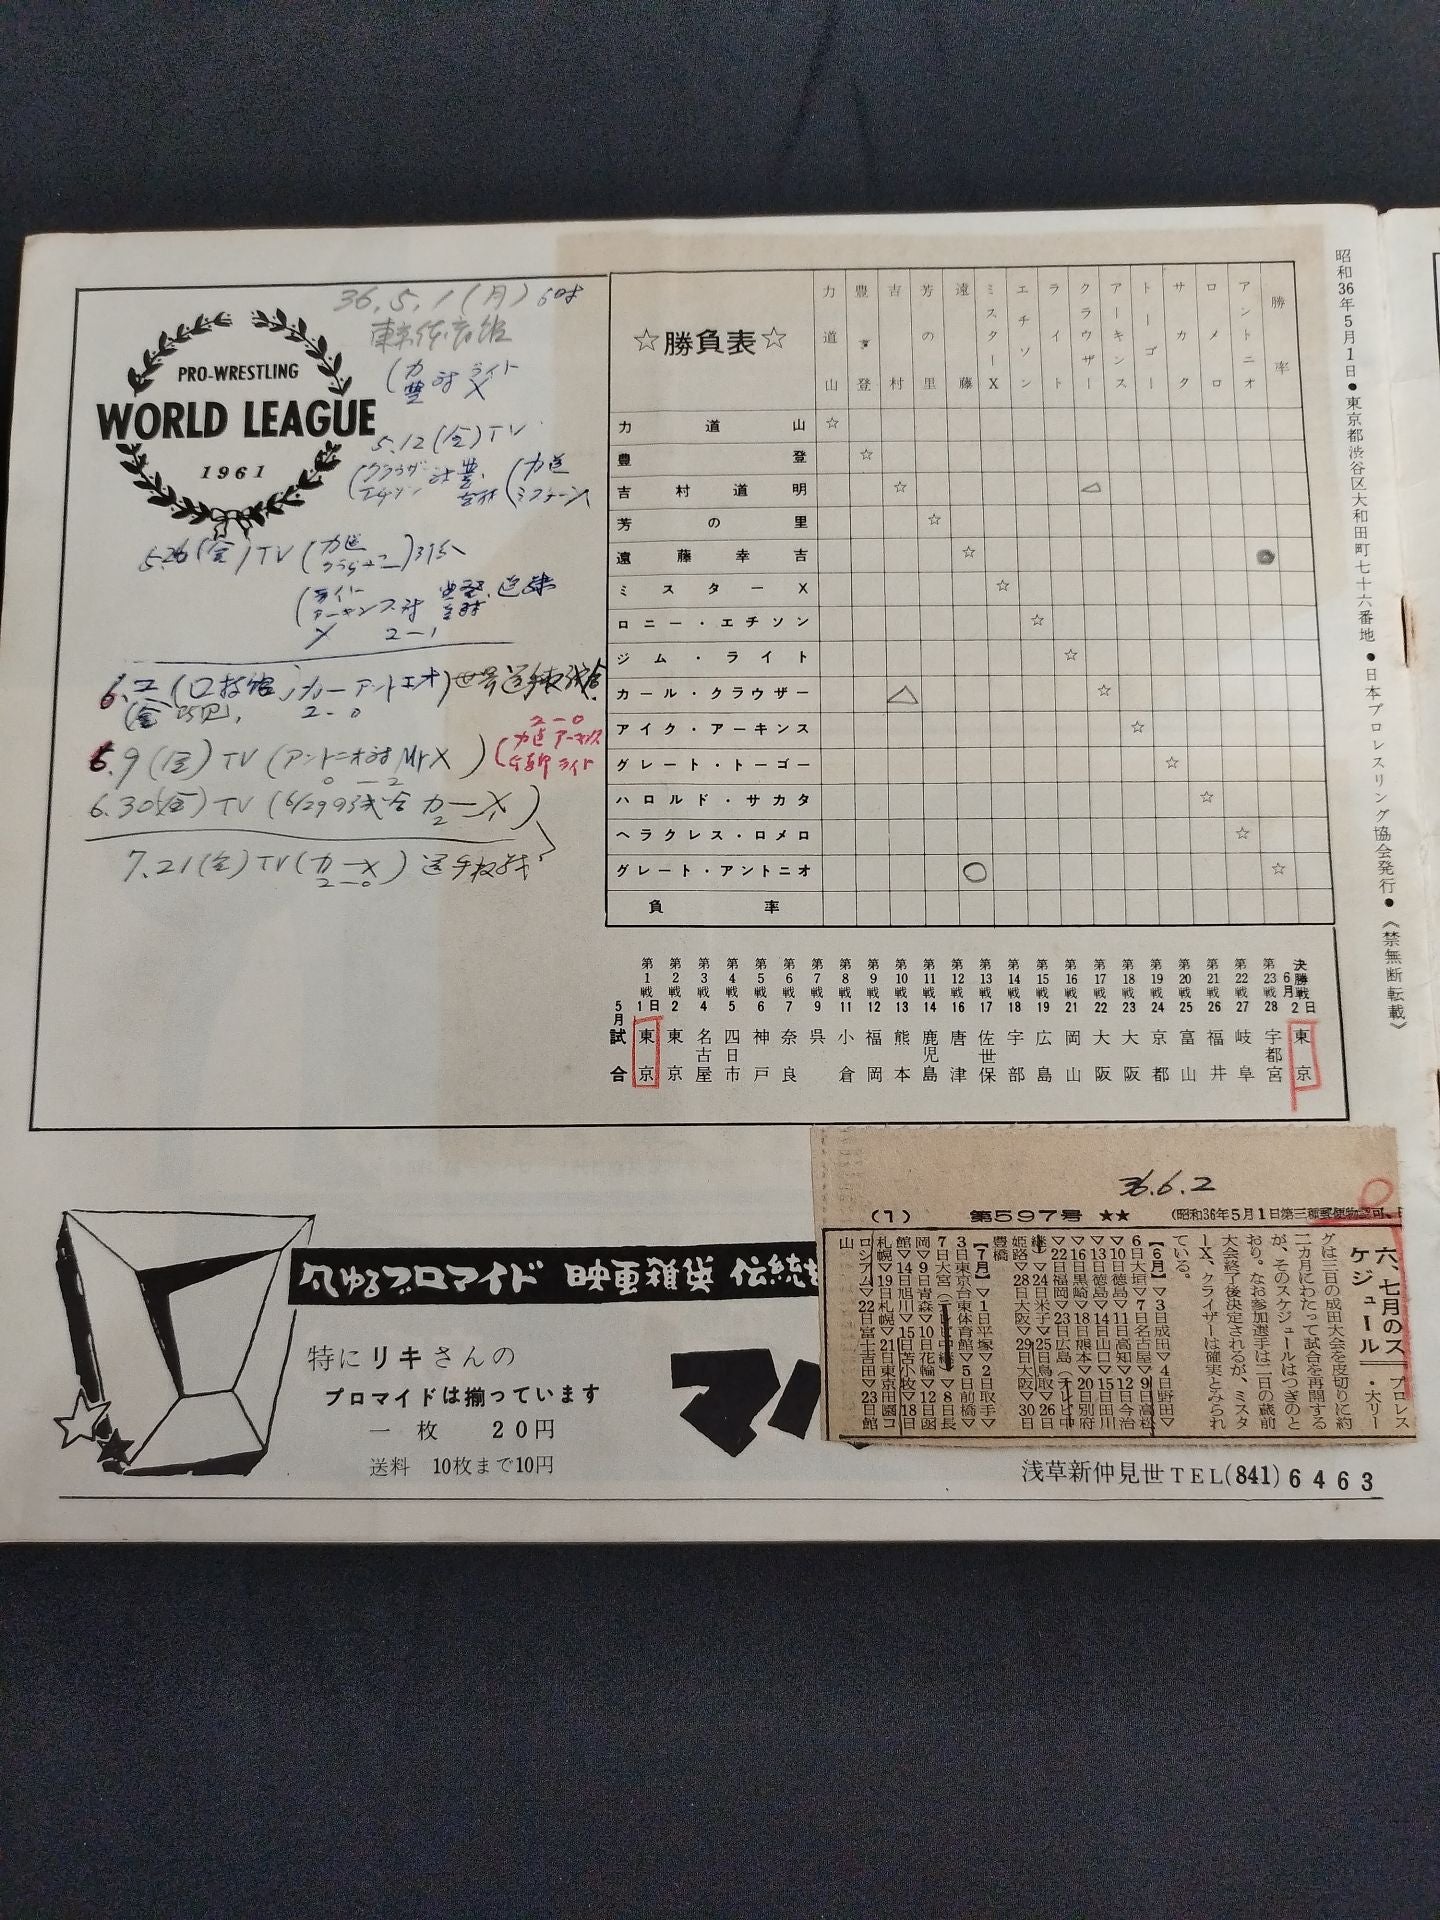 昭和36年5月1日●東京都渋谷区大和田町七十六番地●日本プロレスリング協会発行●《禁無断転載》
PRO-WRESTLING
WORLD LEAGUE
1961
36.5.1(月)
東京体育館
(力 豊 対 ライト X
5.12(金)TV
5.26(金)TV
2-1
2-0
6.9(金)TV(アントニオ対MrX)
0-2
2-0
6.30(金)TV
7.21(金)TV(力-X)
2-0
☆勝負表☆
力道山
豊登
吉村
芳の里
遠藤
ミスターX
エチソン
ライト
クラウザー
アーキンス
トーゴー
サカタ
ロメロ
アントニオ
勝率
力道山 ☆
豊登 ☆
吉村道明 ☆ △
芳の里 ☆
遠藤幸吉 ☆ ●
ミスターX ☆
ロニー・エチソン ☆
ジム・ライト ☆
カール・クラウザー △ ☆
アイク・アーキンス ☆
グレート・トーゴー ☆
ハロルド・サカタ ☆
ヘラクレス・ロメロ ☆
グレート・アントニオ ○ ☆
負率
5月試合
第1戦 1日 東京
第2戦 2 東京
第3戦 4 名古屋
第4戦 5 四日市
第5戦 6 神戸
第6戦 7 奈良
第7戦 9 呉
第8戦 11 小倉
第9戦 12 福岡
第10戦 13 熊本
第11戦 14 鹿児島
第12戦 16 唐津
第13戦 17 佐世保
第14戦 18 宇部
第15戦 19 広島
第16戦 21 岡山
第17戦 22 大阪
第18戦 23 大阪
第19戦 24 京都
第20戦 25 富山
第21戦 26 福井
第22戦 27 岐阜
第23戦 28 宇都宮
決勝戦 6月2日 東京
36.6.2
(1) 第597号 ★★ (昭和36年5月1日第三種郵便物認可、
六、七月のス
ケジュール
プロレス
・大リー
グは三日の成田大会を皮切りに約
二カ月にわたって試合を再開する
が、そのスケジュールはつぎのと
おり。なお参加選手は二日の蔵前
大会終了後決定されるが、ミスタ
ーX、クライザーは確実とみられ
ている。
【6月】▽3日成田▽4日野田▽
6日大垣▽7日名古屋▽9日高松
▽10日徳島▽11日高知▽12日今治
▽13日徳島▽14日山口▽15日田川
▽16日黒崎▽18日熊本▽20日別府
▽22日福岡▽23日広島(テレビ中
継)▽24日米子▽25日鳥取▽26日
姫路▽28日大阪▽29日大阪▽30日
豊橋
【7月】▽1日平塚▽2日取手▽
3日東京台東体育館▽5日前橋▽
7日大宮(テレビ中継)▽8日長
岡▽9日青森▽10日花輪▽12日函
館▽14日旭川▽15日苫小牧▽18日
札幌▽19日札幌▽21日東京田園コ
ロシアム▽22日富士吉田▽23日館
山
プロマイド 映画雑誌 伝統
特にリキさんの
プロマイドは揃っています
一枚 20円
送料 10枚まで10円
マ
浅草新仲見世TEL(841)6463